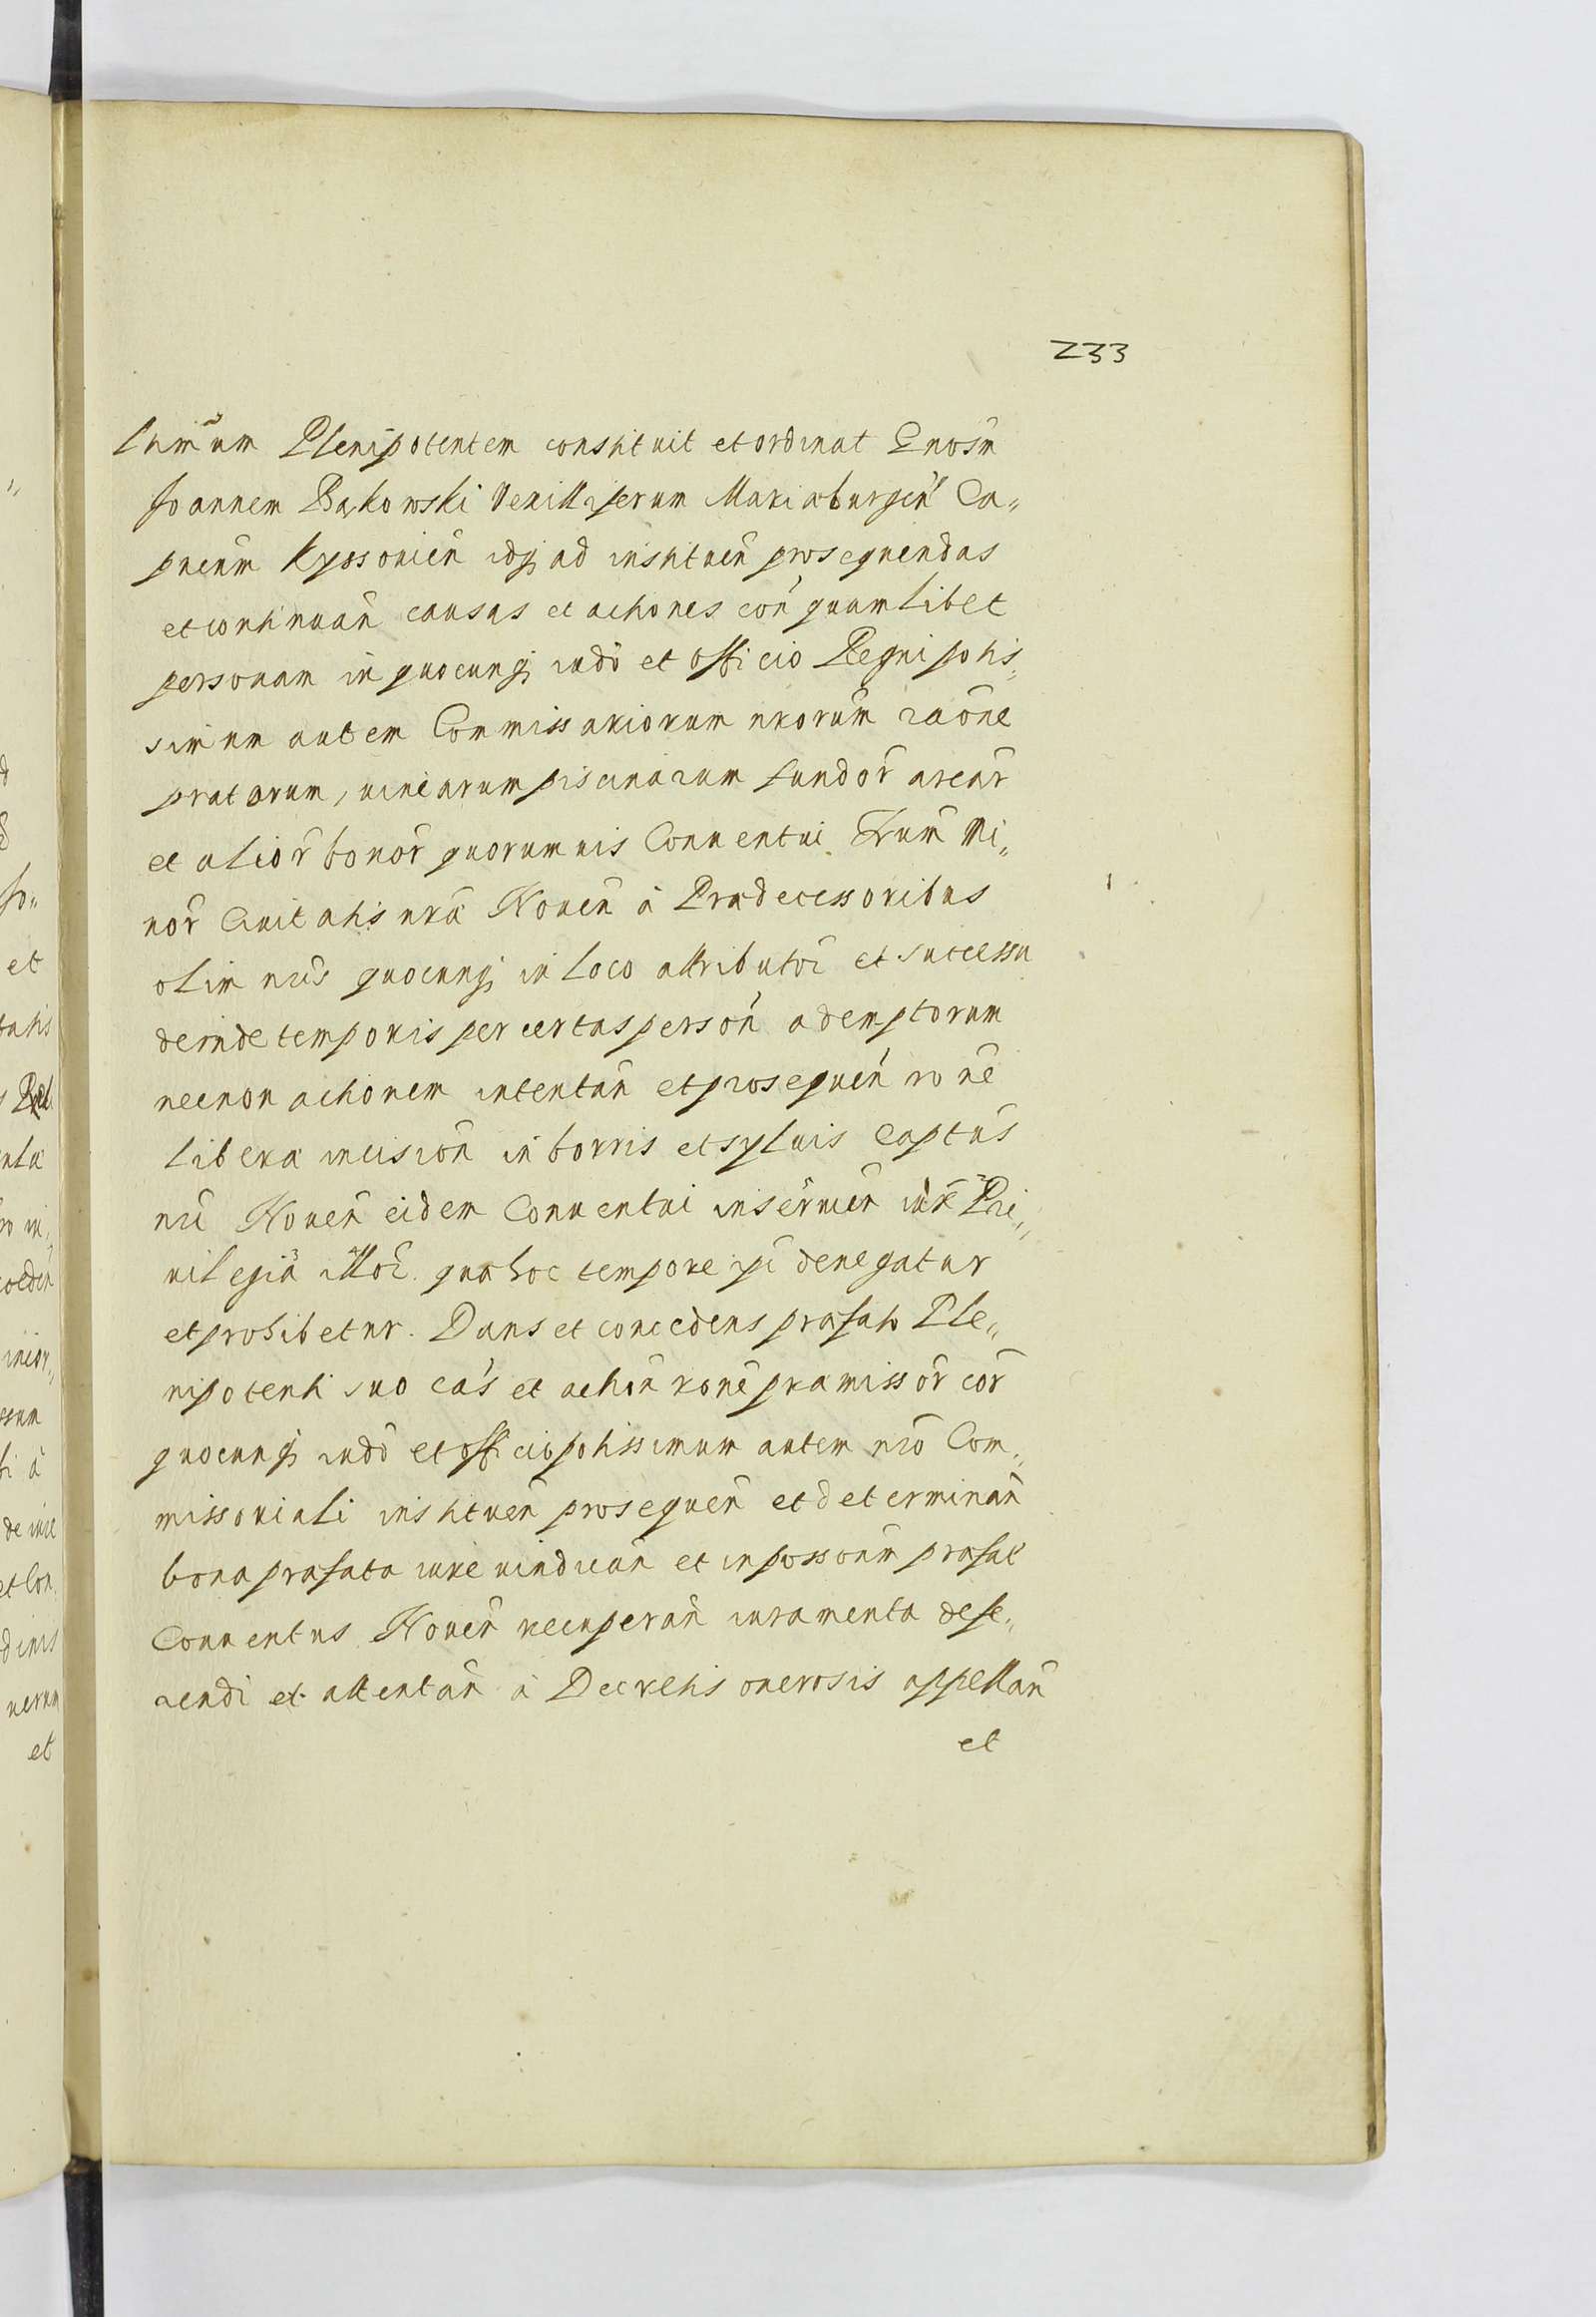 233
ltimum Plenipotentem constituit et ordinat Gnosm̃
Joannem Bąkowski Vexilliferum Mariæburgeñ Ca„
pneum̃ Kyssouieñ idqȝ ad instituen̄ prosequendas
et continuan̄ causas et actiones con̄ quamlibet
personam in quocunqȝ iudõ et officio Regni potis„
simum autem Commissariorum nrorum̃ raõne
pratorum, uinearum piscinarum fundor̄ arear̄
et alior̄ bonor̄ quorumuis Conuentui Frum̃ Mi„
nor̄ Ciuitatis nræ̃ Nouen̄ à Prædecessoribus
olim nris̃ quocunqȝ in loco attributor̄ et successu
deinde temporis per certas person̄ ademptorum
necnon actionem intentan̄ et prosequen̄ rone̅
liberæ incision̄ in borris et syluis Captus̃
nri̅ Nouen̄ eidem Conuentui inseruien̄ iure̅ Pri„
uilegia̅ illor̄. quæ hoc tempore ipi̅ denegatur
et prohibetur. Dans et concedens præfato Ple„
nipotenti suo cas̃ et action̄ rone̅ præmissor̄ cor̄
quocunqȝ iudõ et officio potissimum autem nro̅ Com„
missoriali instituen̄ prosequen̄ et determinan̄
bona præfata iure uindican̄ et in posson̄m præfat̄
Conuentus Nouen̄ recuperan̄ iuramenta defe„
rendi et attentan̄ à Decretis onerosis appellan̄
et